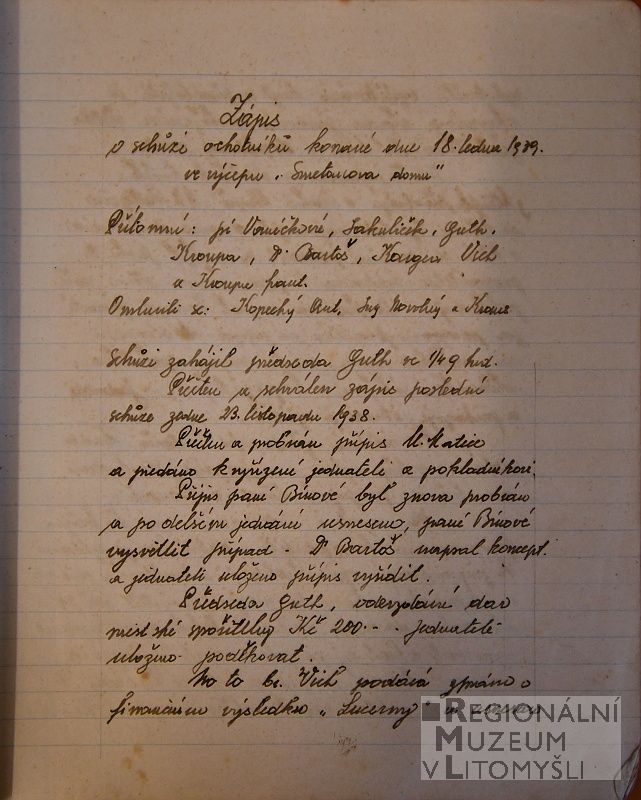 Zápis
o schůzi ochotníků konané dne 18. ledna 1939.
ve výčepu „Smetanova domu"
Přítomni: pí Vaníčkové, Sakulíček, Guth,
Kroupa, Dr Bartoš, Karger Vích
a Kroupa
Omluvili se: Kopecký Ant, Ing Novotný a Kraus
Schůzi zahájil předseda Guth ve 1/4 9 hod.
Přečten a schválen zápis poslední
schůze ze dne 23. listopadu 1938.
Přečten a probrán přípis M. Matice
a předáno k vyřízení jednateli a pokladníkovi.
Přípis paní Bínové byl znova probrán
a po delším jednání usneseno, paní Bínové
vysvětlit případ - Dr Bartoš napsal koncept
a jednateli uloženo přípis vyřídit.
Předseda Guth, odevzdává dar
městské spořitelny Kč 200.- - jednateli
uloženo poděkovat.
Na to br. Vích podává zprávu o
finančním výsledku „Lucerny"
REGIONÁLNÍ
MUZEUM
V LITOMYŠLI